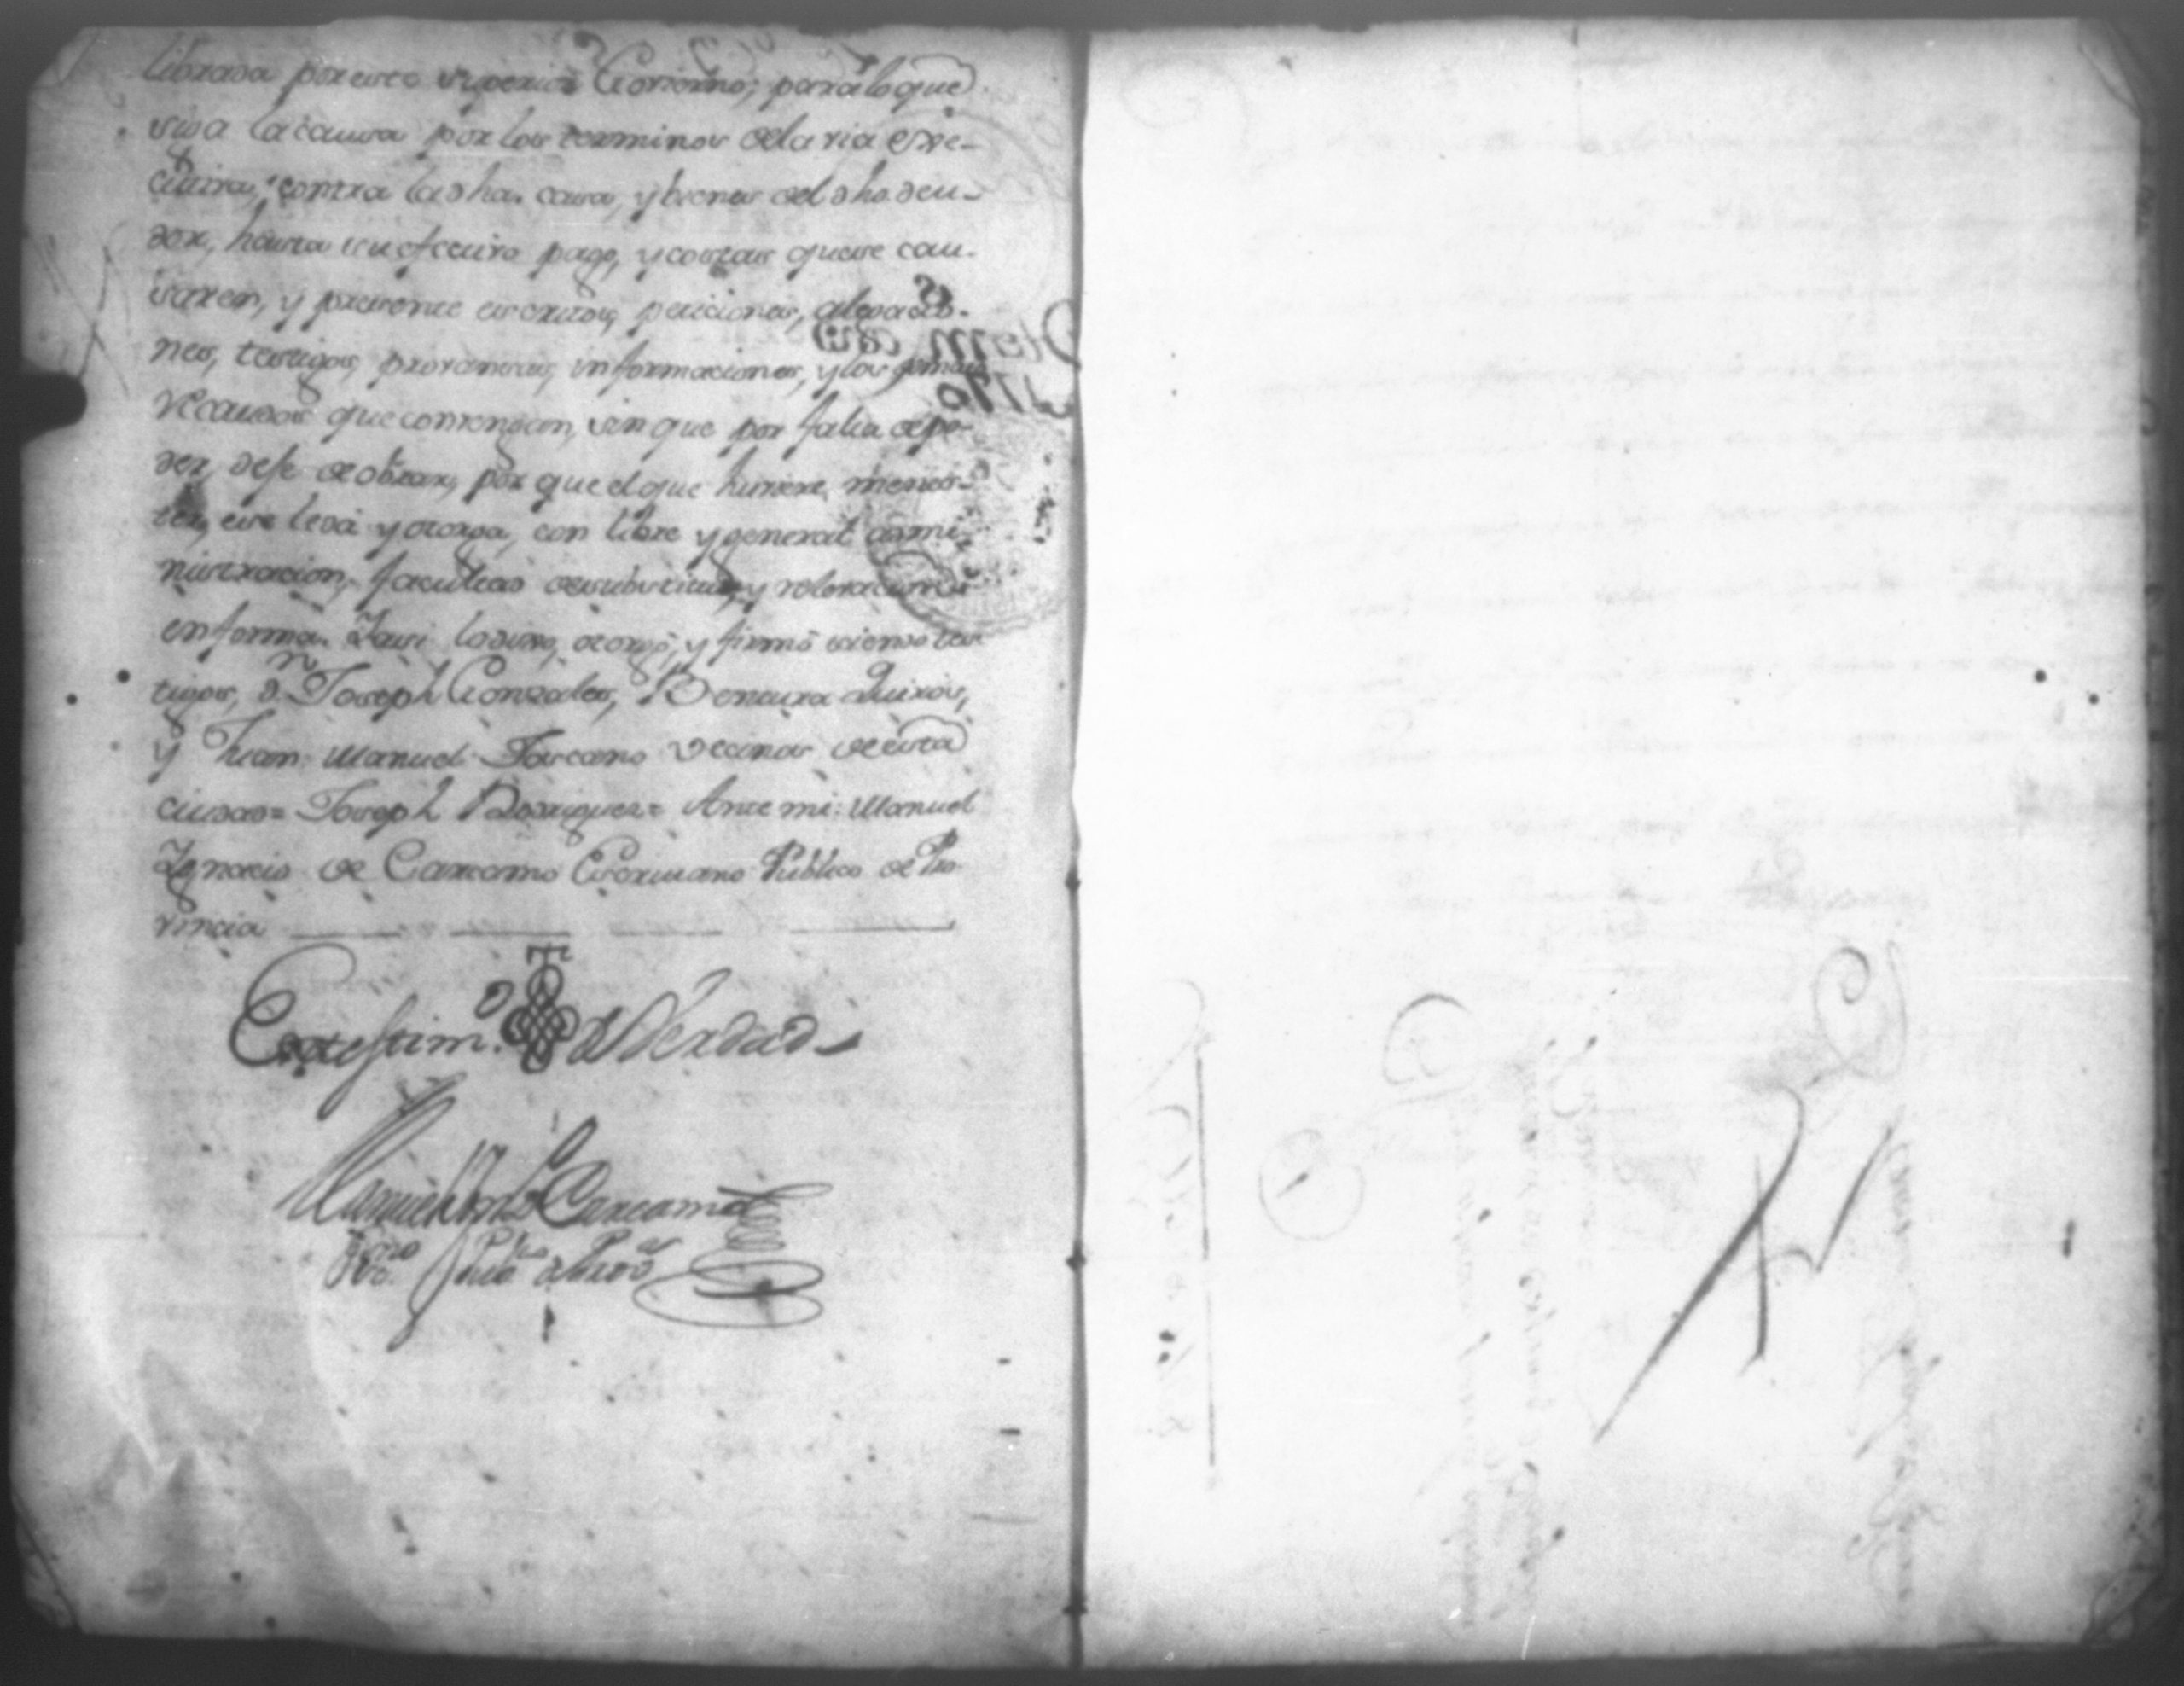 librada por este Superior Govierno; para lo que
siga la causa por los terminos de la via exe-
cutiva, contra la dha. casa, y bienes del dho. deu-
dor, hasta su efectivo pago, y costas que se cau-
saren, y presente escritos, peticiones, alegacio-
nes, testigos, provansas, informaciones, y los demas
recaudos que convengan, sin que por falta de po-
der, deje de obrar, por que el que huviere menes-
ter, ese le da y otorga, con libre y general admi-
nistracion, facultad de substituir, y relevacion
en forma. Y assi lo dixo, otorgó, y firmó siendo tes-
tigos, Dn. Joseph Gonzales, Bentura Quiros,
y Juan Manuel Toscano vecinos de esta
ciudad= Joseph Rodriguez= Ante mi: Manuel
Ignacio de Carcamo Escrivano Publico de Pro-
vincia
En testimo. de Verdad
Manuel Igno. de Carcamo
Essno. Puco. de Prova